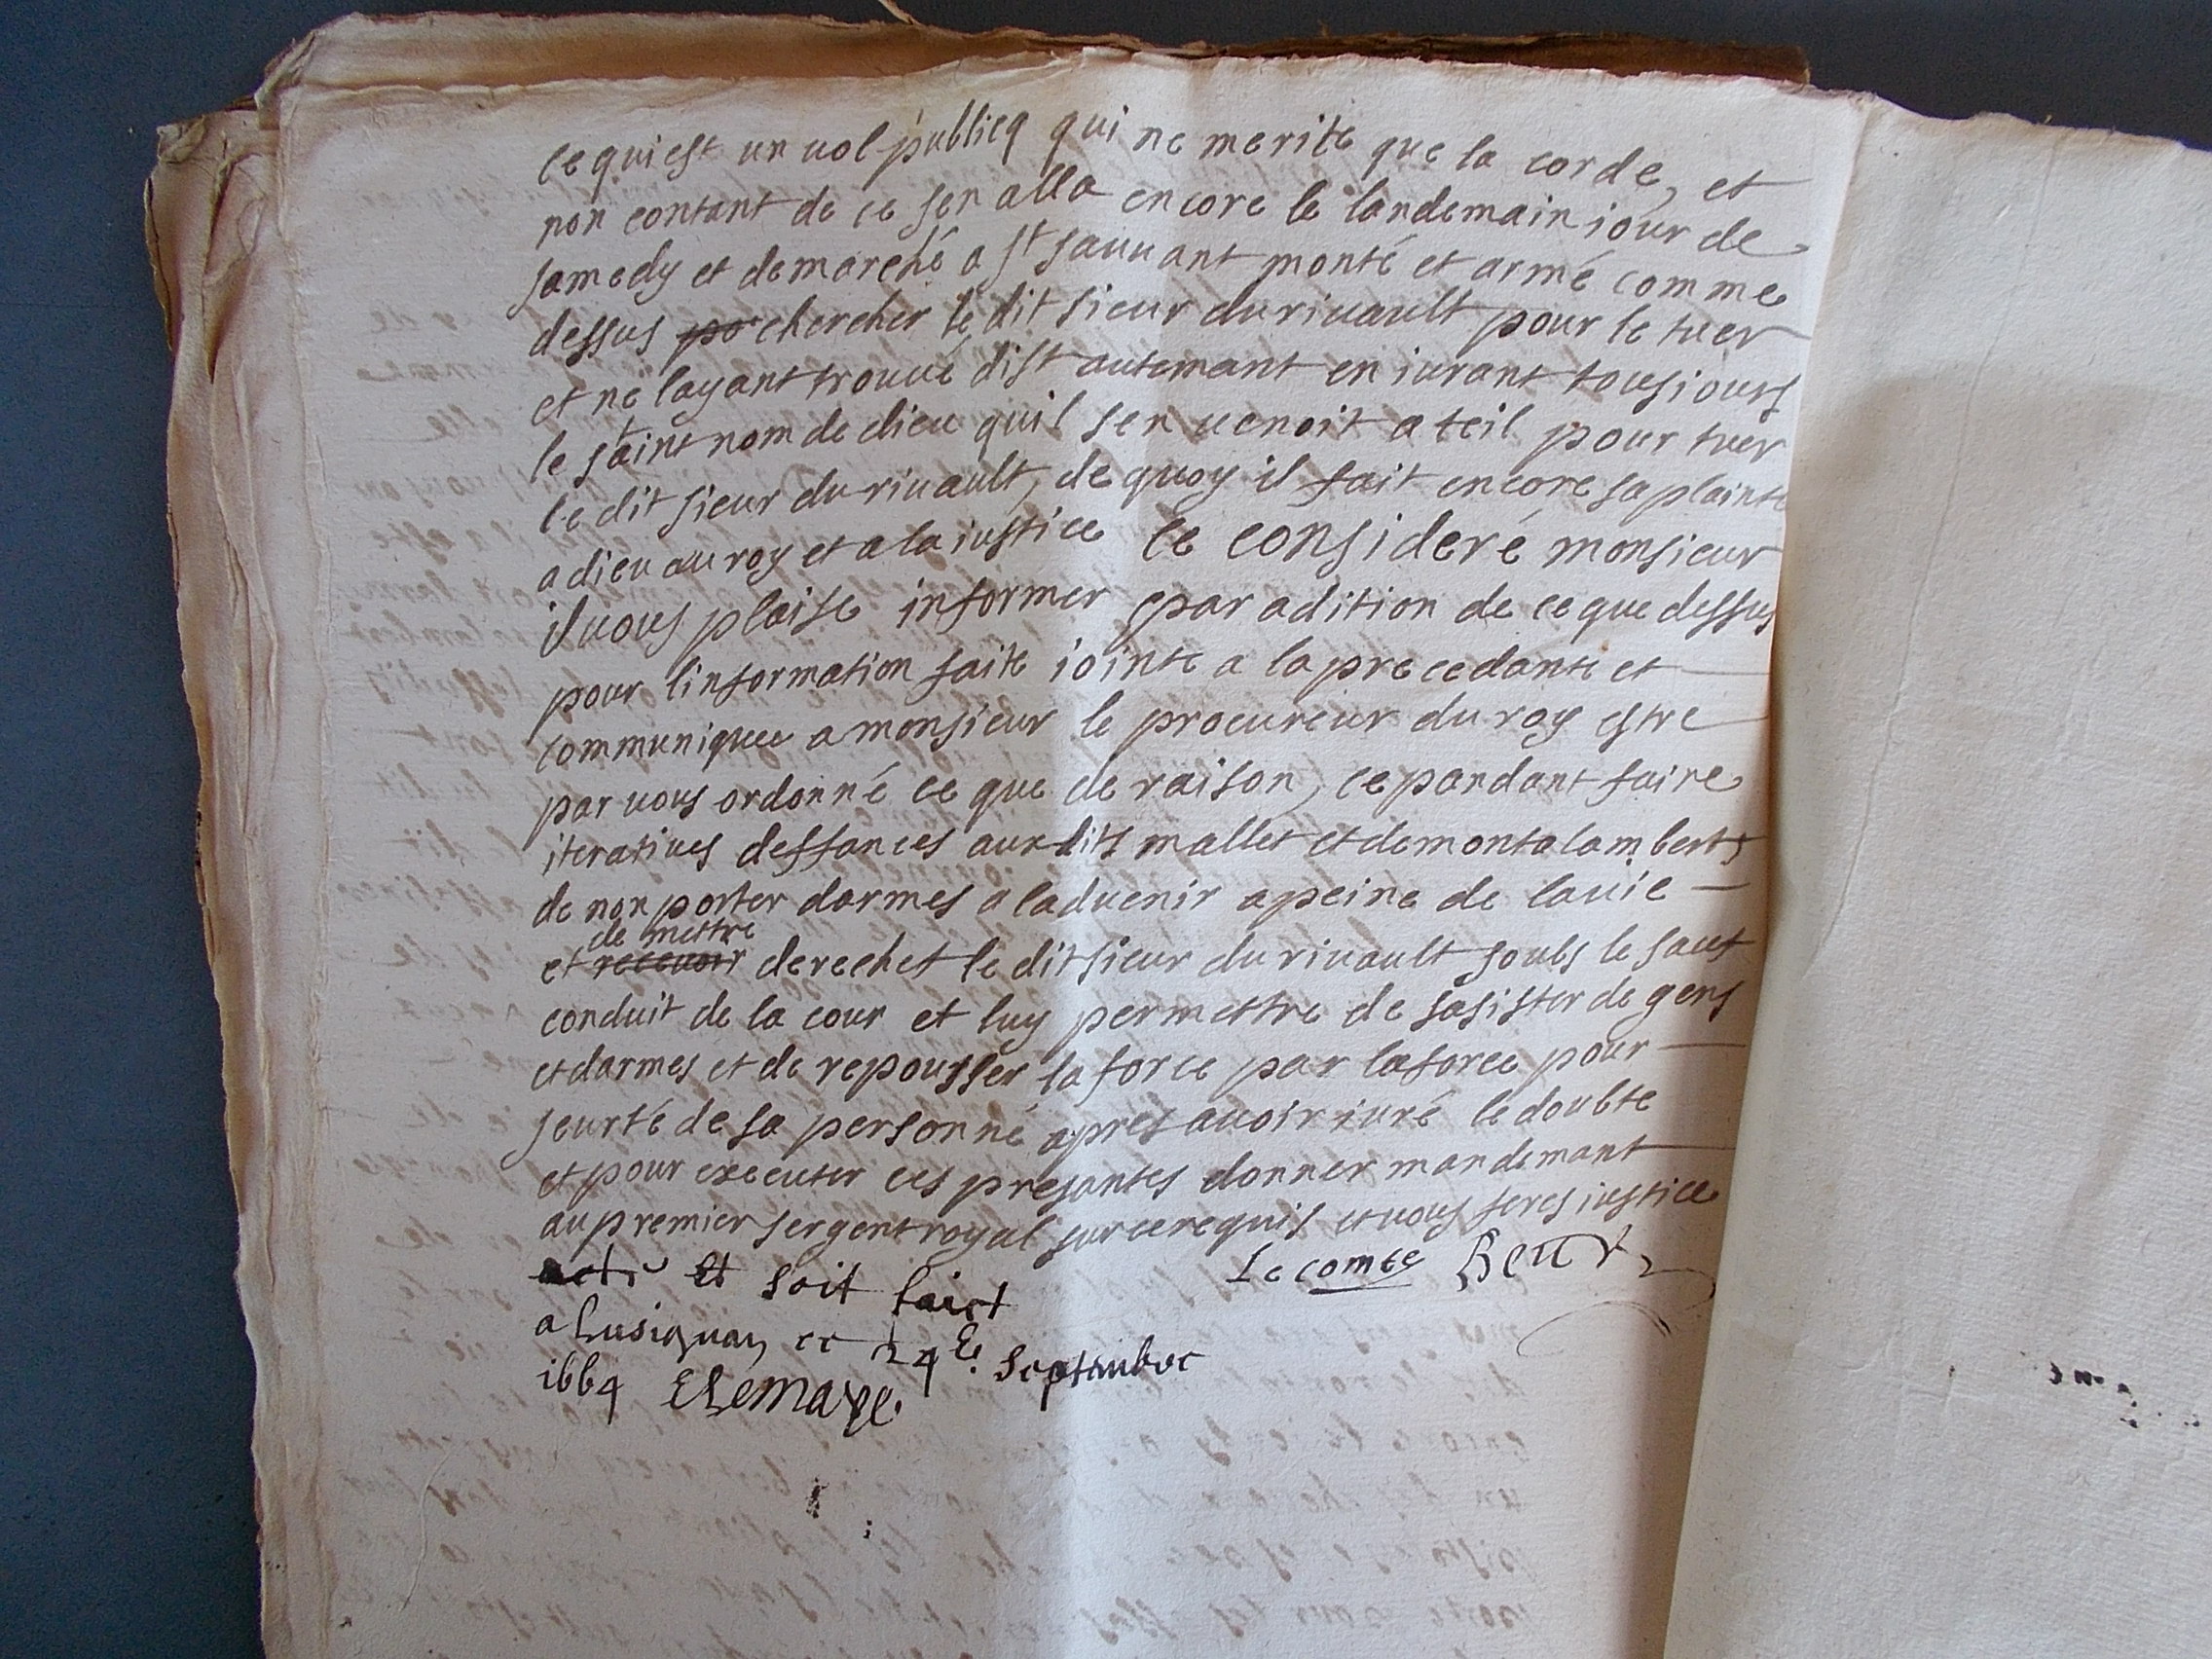 ce qui est un vol publicq qui ne merite que la corde, et
non contant de ce sen alla encore le landemain iour de
samedy et de marché a st sauuant monté et armé comme
dessus po chercher le dit sieur du riuault pour le tuer
et ne layant trouué dist autemant en iurant tousiours
le saint nom de dieu quil sen uenoit a teil pour tuer
le dit sieur du riuault, de quoy il fait encore sa plainte
a dieu au roy et a la iustice ce consideré monsieur
il uous plaise informer par adition de ce que dessus
pour linformation faite iointe a la precedante et
communiquee a monsieur le procureur du roy estre
par uous ordonné ce que de raison, ce pandant faire
iteratiues deffances aux dits mallet et de montalamberts
de non porter darmes a laduenir a peine de la uie
de mettre
et receuoir derechef le dit sieur du riuault soubs le sauf
conduit de la cour et luy permettre de sasister de gens
et darmes et de repousser la force par la force pour
seurté de sa personne apres auoir iuré le doubte
et pour executer ces presantes donner mandemant
au premier sergent royal sur ce requis et uous feres iustice
Le comte
acte et soit faict
a Lusignan ce 24e septembre
1664